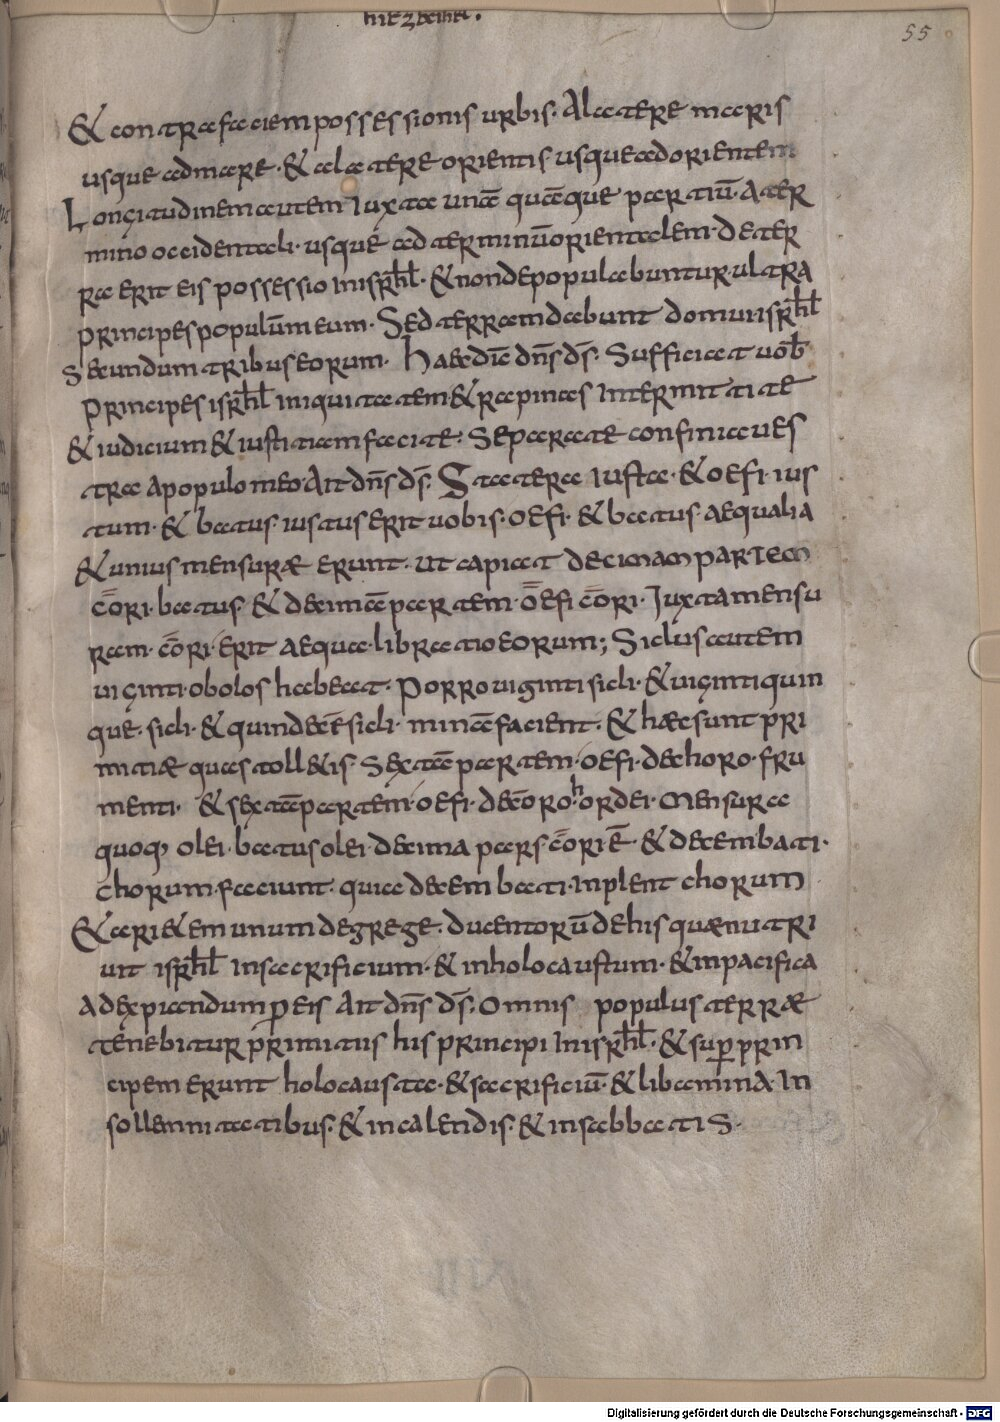 hiezechiel.
55
& contra faciem possessionis urbis· A latere maris
usque ad mare· & a latere orientis usque ad orientem
Longitudinem autem iuxta unā quāque partiū· A ter
mino occidentali· usque ad terminū orientalem· de ter
ra erit eis possessio in isrħl· & non depopulabuntur ultra
principes populūm eum· Sed terram dabunt domui isrħl
secundum tribus eorum· Haec dic̄ dn̄s ds̄· Sufficiat uob̄
principes isrħl iniquitatem & rapinas intermittite
& iudicium & iustitiam facite· separate confinia ues
tra a populo meo Ait dn̄s ds̄· Statera iusta· & oefi· ius
tum· & batus· iustus erit uobis· oefi· & batus· aequalia
& unius mensuræ erunt· ut capiat decimam partem
cōri· batus· & decimā partem· ōefi cōri· Iuxta mensu
ram· cōri· erit aequa· libratio eorum; Siclus autem
uiginti· obolos habeat· Porro uiginti sicli· & uiginti quin
que· sicli· & quindecī sicli· minā facient· & hæc sunt pri
mitiæ quas toll&is· sextā partem· oefi· de choro· fru
menti· & sextā partem· oefi· de coro· hordei· Mensura
quoq; olei· batus olei· decima pars· cōri ē· & decem bati·
chorum faciunt· quia decem bati· inplent chorum
& ari&em unum de grege· ducentorū de his quæ nutri
unt isrħl in sacrificium· & in holocaustum· & in pacifica
ad expiandum p̱ eis Ait dn̄s ds̄· Omnis populus terræ
tenebitur primitiis his principi in isrħl· & sup̱ prin
cipem erunt holocausta· & sacrificiū· & libamina· In
sollemnitatibus· & in calendis· & in sabbatis·
Digitalisierung gefördert durch die Deutsche Forschungsgemeinschaft - DFG